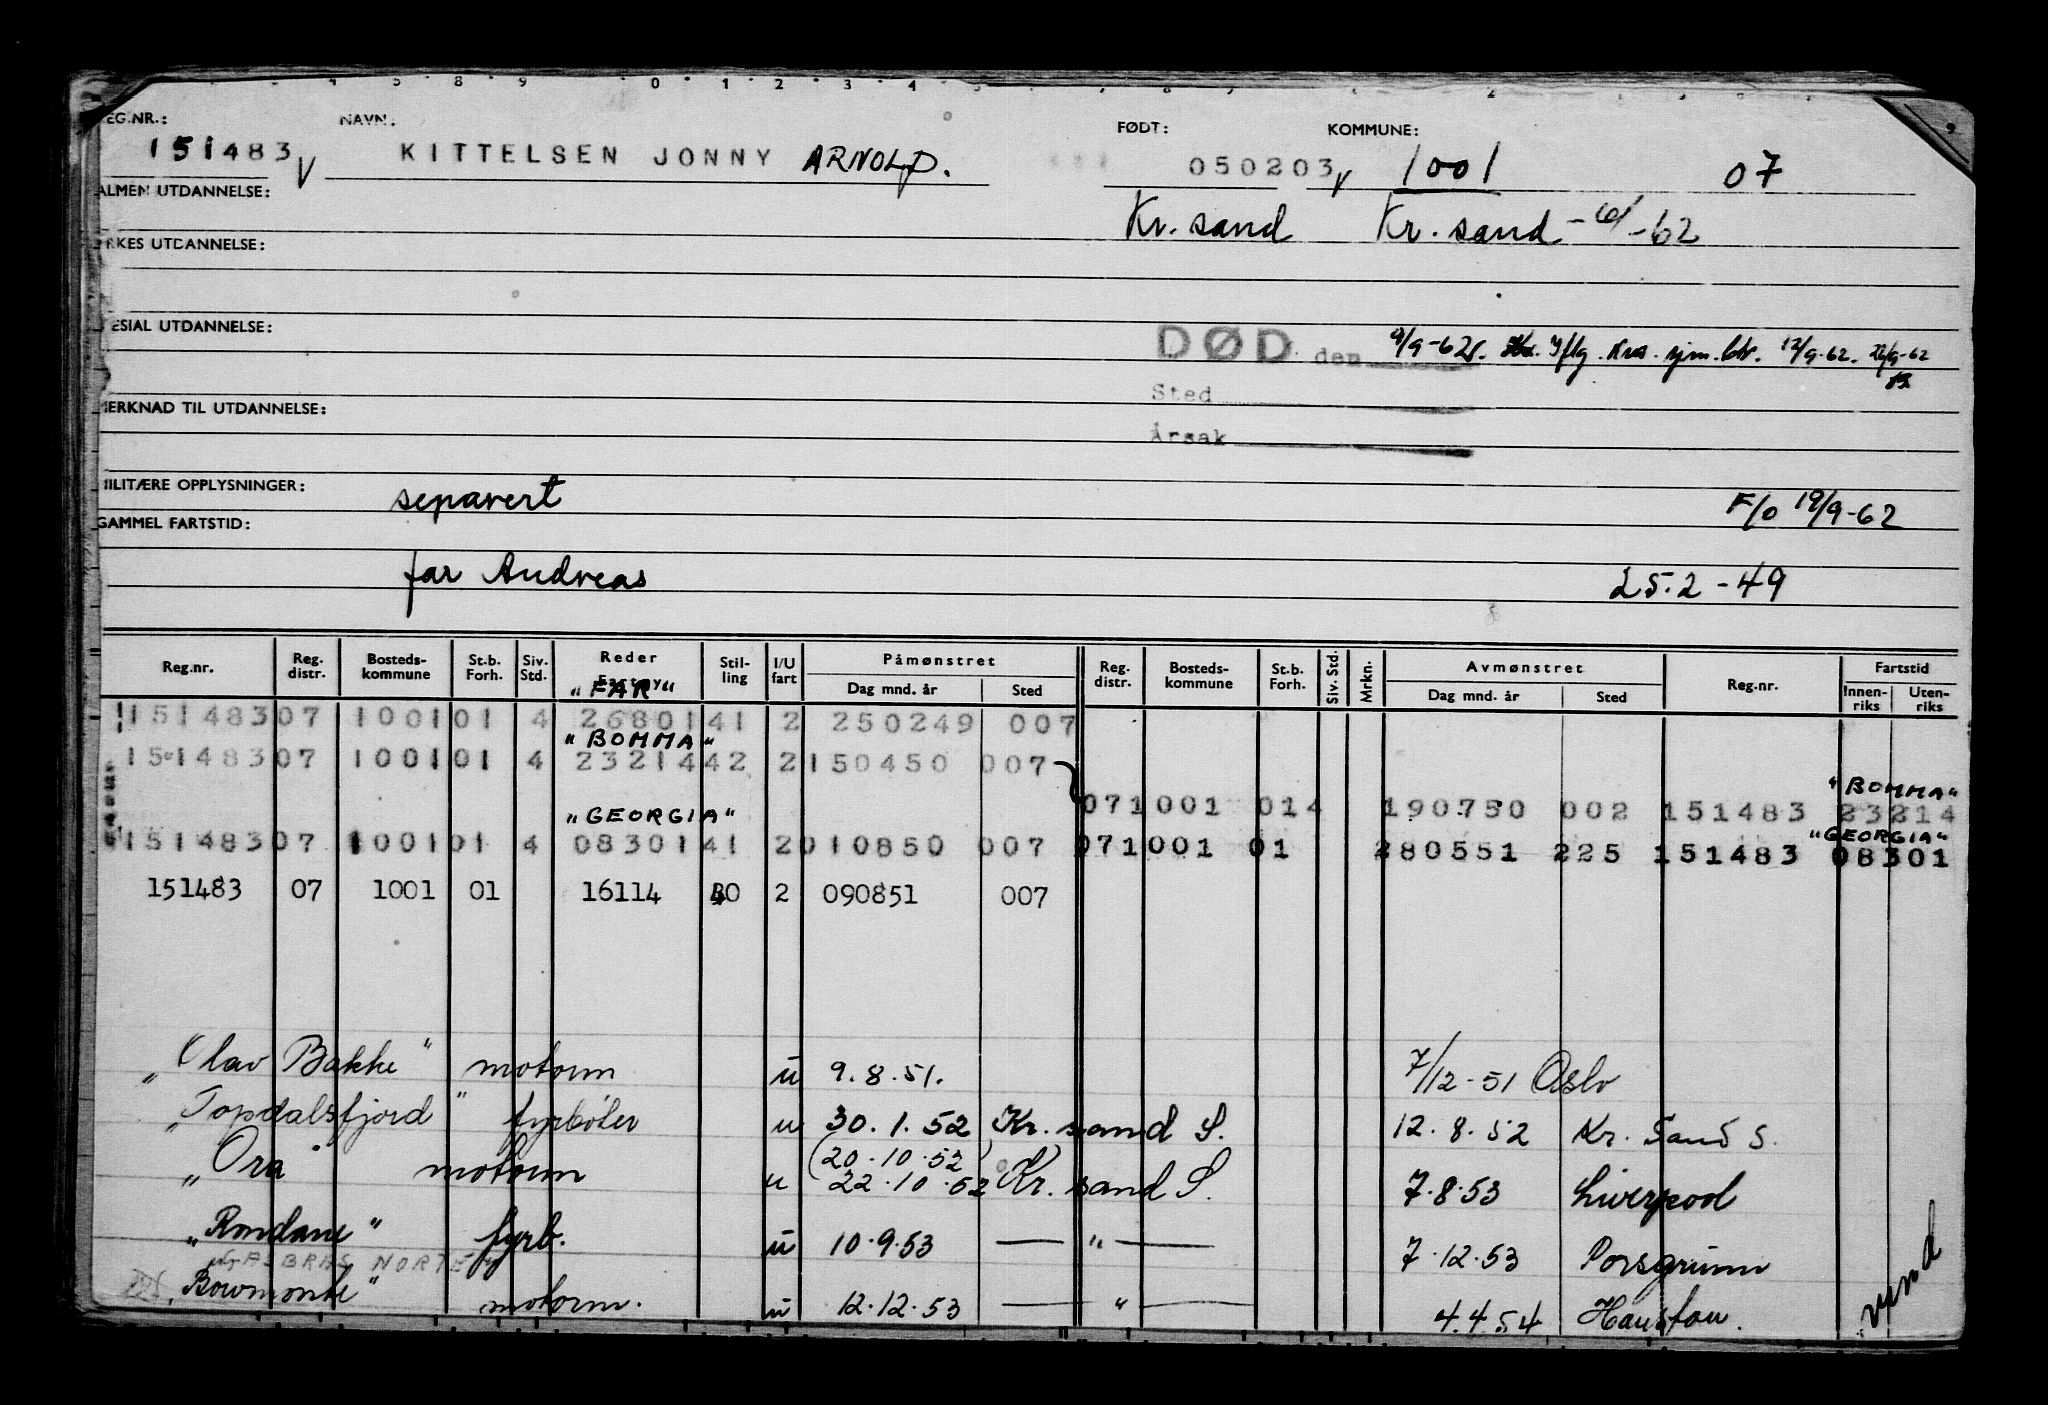 EG.NR.: NAVN: FØDT: KOMMUNE:
151483 KITTELSEN JONNY ARNOLD. 050203 1001 07
ALMEN UTDANNELSE: Kr. sand Kr. sand -62
RKES UTDANNELSE:
ESIAL UTDANNELSE:
DØD den 9/9-62. Iflg. Kra. sjm. ktr. 12/9-62. 26/9-62
Sted
Årsak
MERKNAD TIL UTDANNELSE:
MILITÆRE OPPLYSNINGER: separert F/o 19/9-62
GAMMEL FARTSTID:
far Andreas 25.2-49
Reg.nr. Reg. distr. Bosteds- kommune St.b. Forh. Siv. Std. Reder Stil- ling I/U fart Påmønstret Dag mnd. år Sted Reg. distr. Bosteds- kommune St.b. Forh. Siv. Std. Mrkn. Avmønstret Dag mnd. år Sted Reg.nr. Fartstid Innen- riks Uten- riks
"FAR"
151483 07 1001 01 4 26801 41 2 250249 007
"BOMMA"
151483 07 1001 01 4 23214 42 2 150450 007
"BOMMA"
07 1001 014 190750 002 151483 23214
"GEORGIA" "GEORGIA"
151483 07 1001 01 4 08301 41 2 010850 007 07 1001 01 280551 225 151483 08301
151483 07 1001 01 16114 40 2 090851 007
"Olav Bakke" motorm u 9.8.51. 7/12-51 Oslo
"Topdalsfjord" fyrbøter u 30.1.52 Kr. sand S. 12.8.52 Kr. Sand S.
(20.10.52)
"Ora" motorm u 22.10.52 Kr. sand S. 7.8.53 Liverpool
"Rondane" fyrb. u 10.9.53 — " — 7.12.53 Porsgrunn
NORTE
"Bowmonte" motorm. u 12.12.53 — " — 4.4.54 Houston.
vend